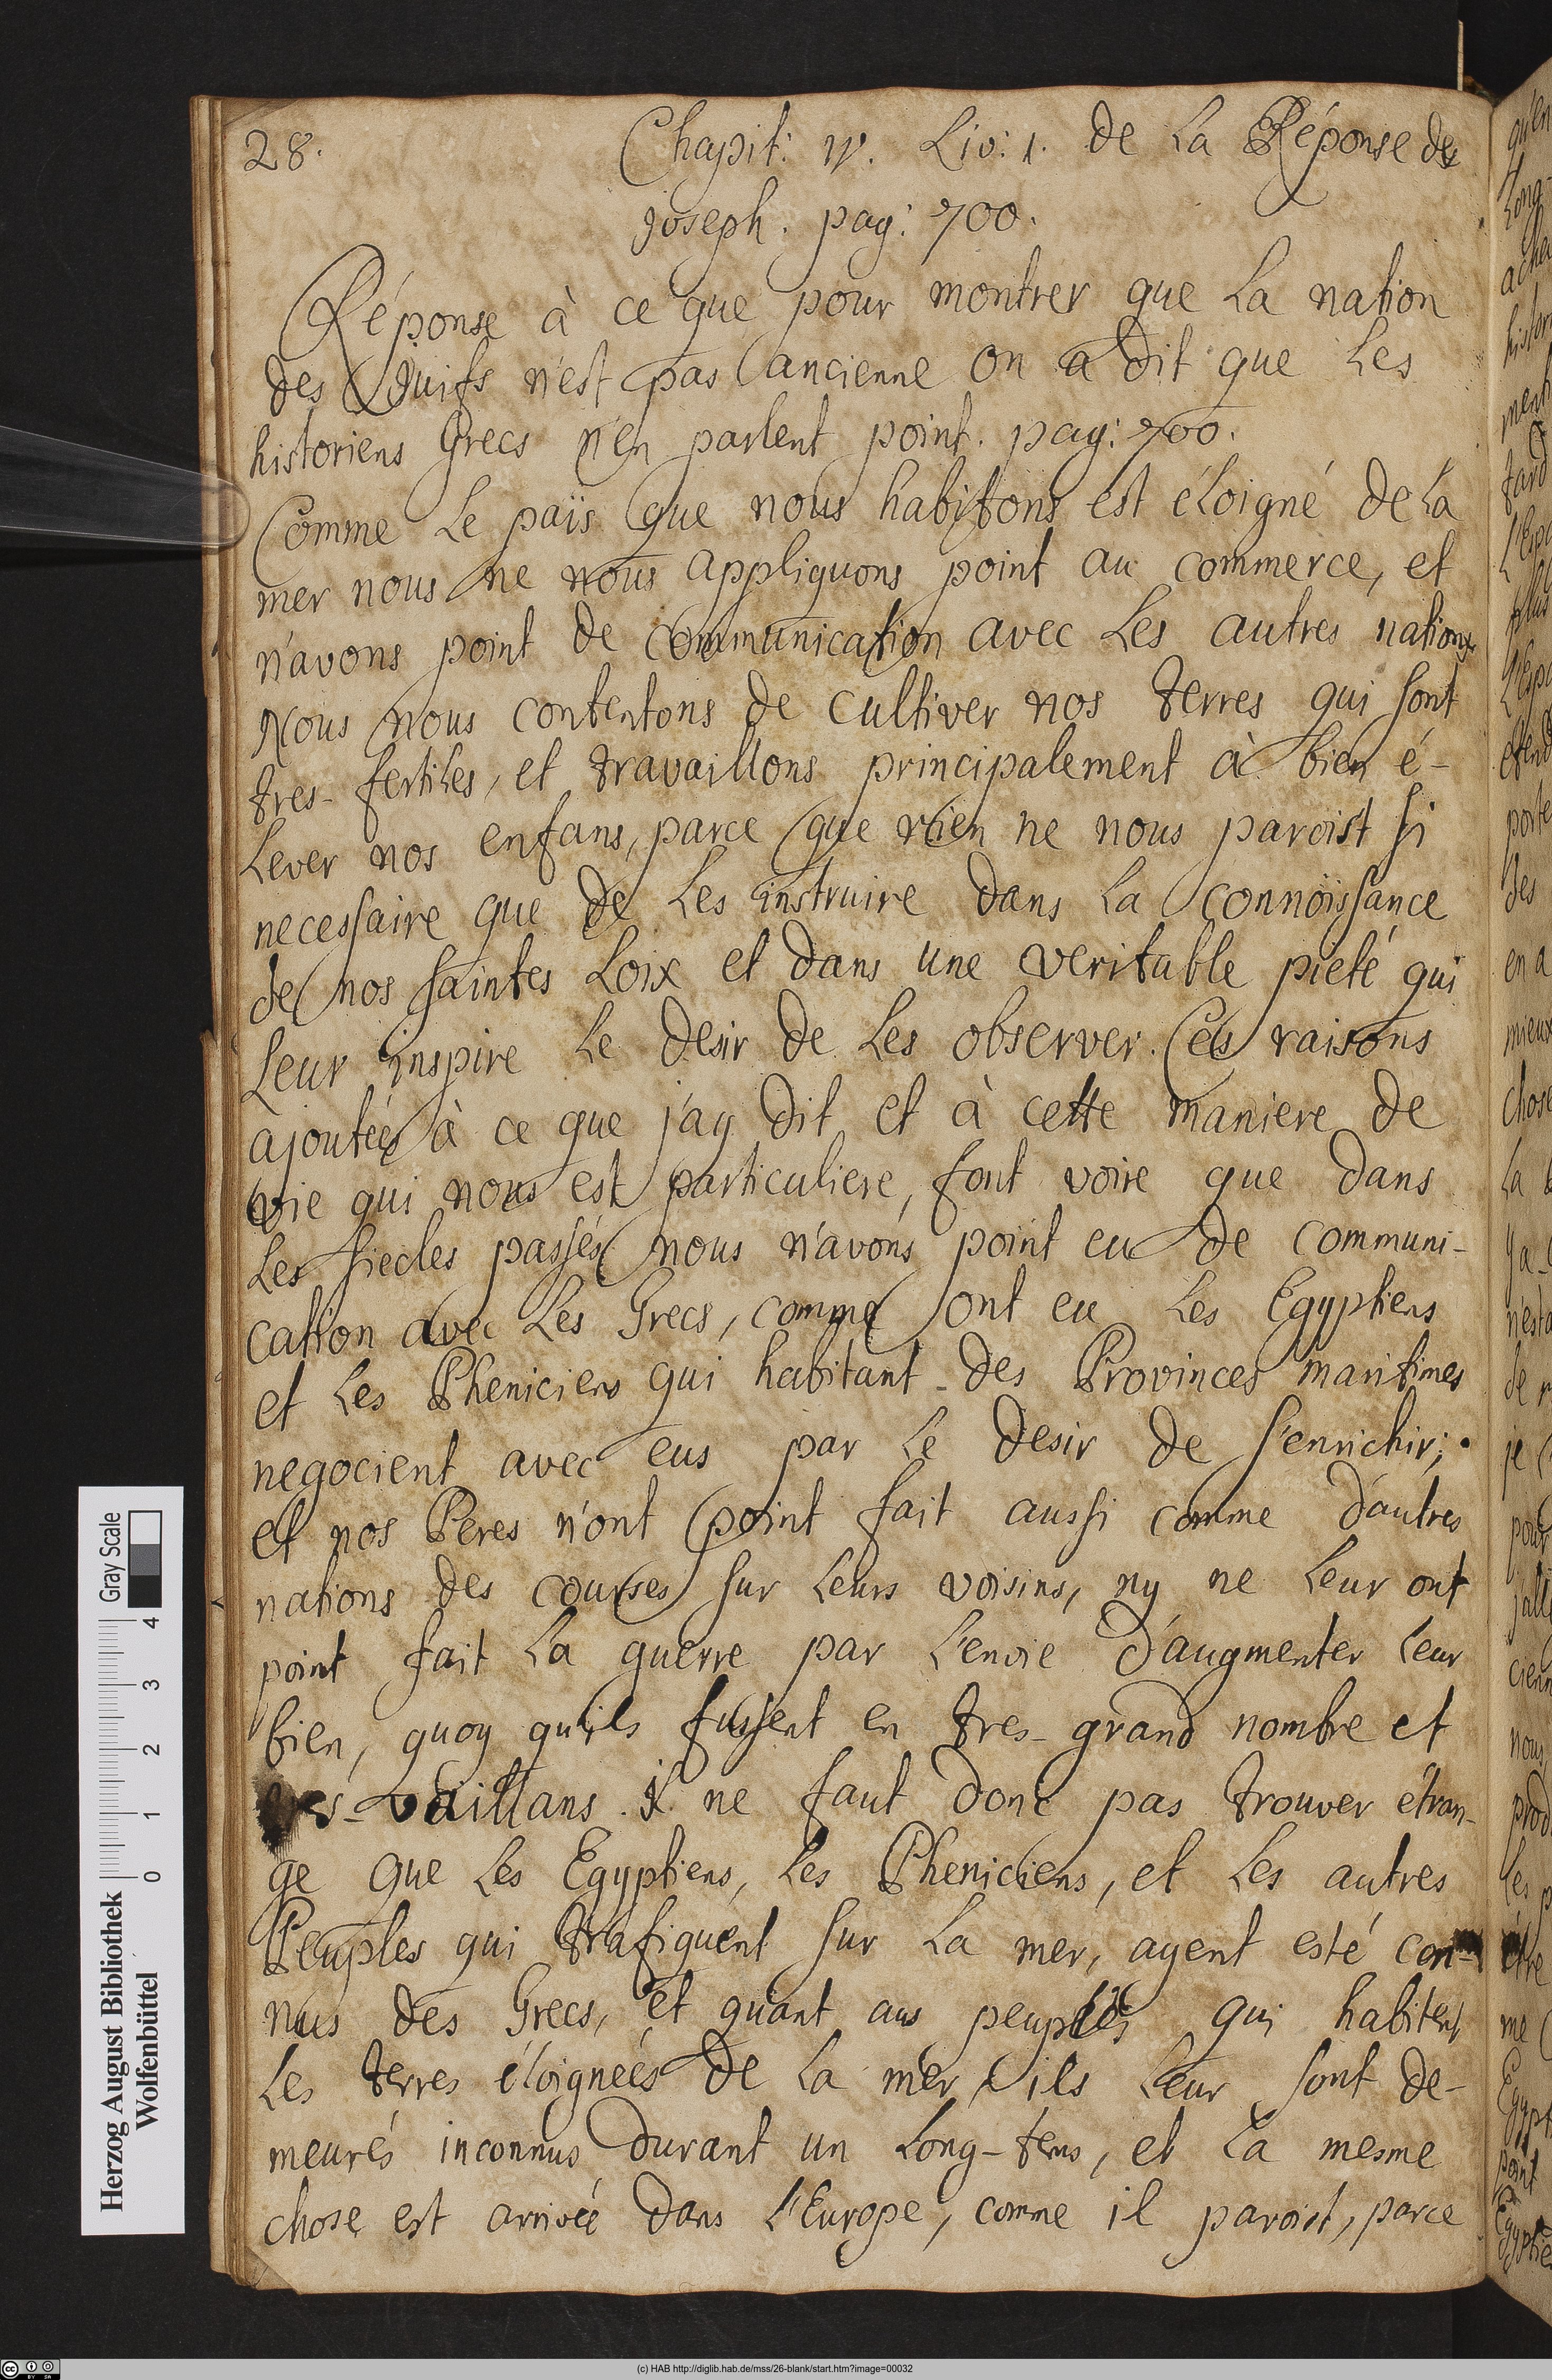 28.
Chapit: IV. Liv: 1. de La Réponse de
Joseph. pag: 700.
Réponse à ce que pour montrer que La nation
des Juifs n'est pas ancienne on a dit que Les
historiens Grecs n'en parlent point. pag: 700.
Comme Le païs que nous habitons est éLoigné de La
mer nous ne nous appliquons point au commerce, et
n'avons point de communication avec Les autres nations.
Nous nous contentons de cultiver nos terres qui sont
tres-fertiles, et travaillons principalement à bien é-
Lever nos enfans, parce que rien ne nous paroist si
necessaire que de Les instruire dans La connoissance
de nos saintes Loix et dans une veritable pieté qui
Leur inspire Le desir de Les observer. Ces raisons
ajoutées à ce que j'ay dit et à cette maniere de
vie qui nous est particuliere, font voire que dans
Les siecles passés nous n'avons point eu de communi-
cation avec Les Grecs, comme ont eu Les Egyptiens
et Les Pheniciens qui habitant-des Provinces maritimes
negocient avec eus par Le desir de s'enrichir;
et nos Peres n'ont point fait aussi comme d'autres
nations des courses sur Leurs voisins, ny ne Leur ont
point fait La guerre par L'envie d'augmenter Leur
bien, quoy qu'ils fussent en tres-grand nombre et
tres-vaillans. il ne faut donc pas trouver étran-
ge que Les Egyptiens, Les Pheniciens, et Les autres
Peuples qui trafiquent sur La mer, ayent esté con-
nus des Grecs, et quant aus peuples qui habitent
Les terres éLoignées de La mer, ils Leur sont de-
meurés inconnus durant un Long-tems, et La mesme
chose est arrivée dans L'Europe, comme il paroist, parce
Herzog August Bibliothek
Wolfenbüttel
0 1 2 3 4
Gray Scale
(c) HAB http://diglib.hab.de/mss/26-blank/start.htm?image=00032